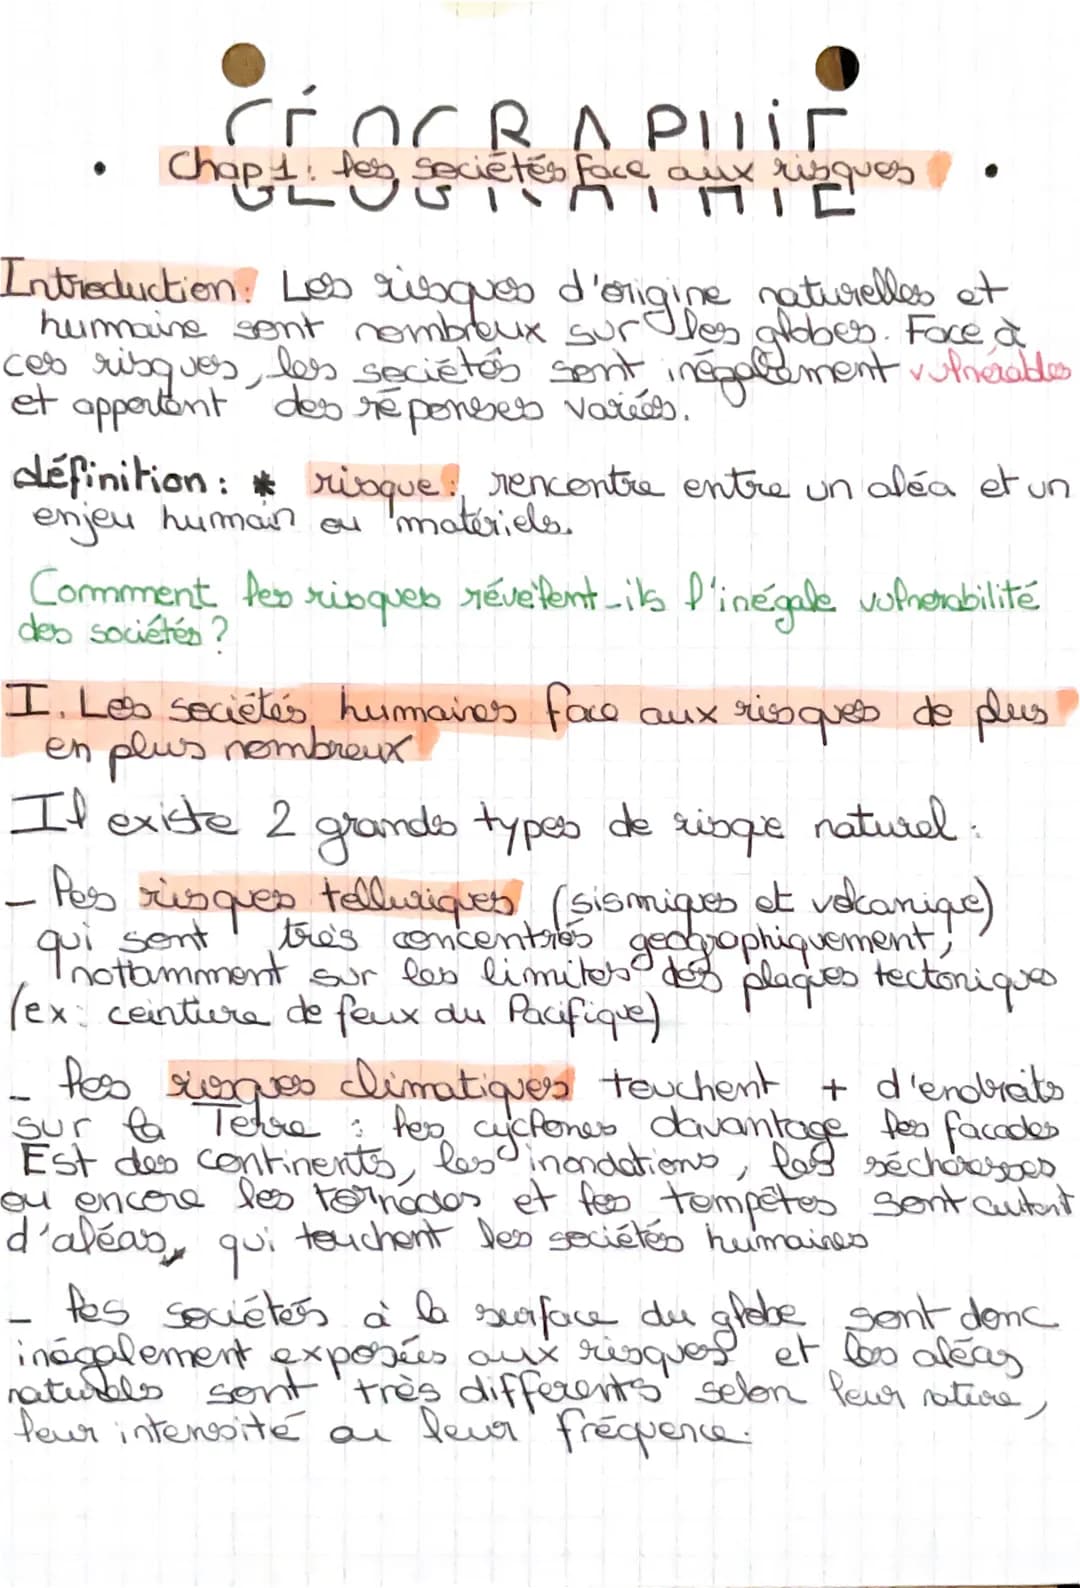 GÉOGRAPHIE
Chap 1: les sociétés face aux risques
Introduction: Les risques d'origine naturelles et
humaine sont nombreux sur les globes. Face à
ces risques, les sociétés sont inégalament vulnérables
et apportent des réponses variés.
définition: * risque: rencontre entre un aléa et un
enjeu humain ou matériels.
Comment les risques révèlent-ils l'inégale vulnérabilité
des sociétés ?
I. Les sociétés humaines face aux risques de plus
en plus nombreux
Il existe 2 grands types de risque naturel :
- les risques telluriques (sismiques et volcanique)
qui sont très concentrés geographiquement,
nottamment sur les limites des plaques tectoniques
(ex: ceinture de feux du Pacifique)
- les risques climatiques touchent + d'endroits
sur la Terre : les cyclones davantage les facades
Est des continents, les inondations, les sécheresses
ou encore les tornados et les tempêtes sont autant
d'aléas, qui touchent les sociétés humaines
- les sociétés à la surface du globe sont donc
inégalement exposées aux risques et les aléas
naturels sont très differents selon leur nature,
leur intensité ou leur fréquence.